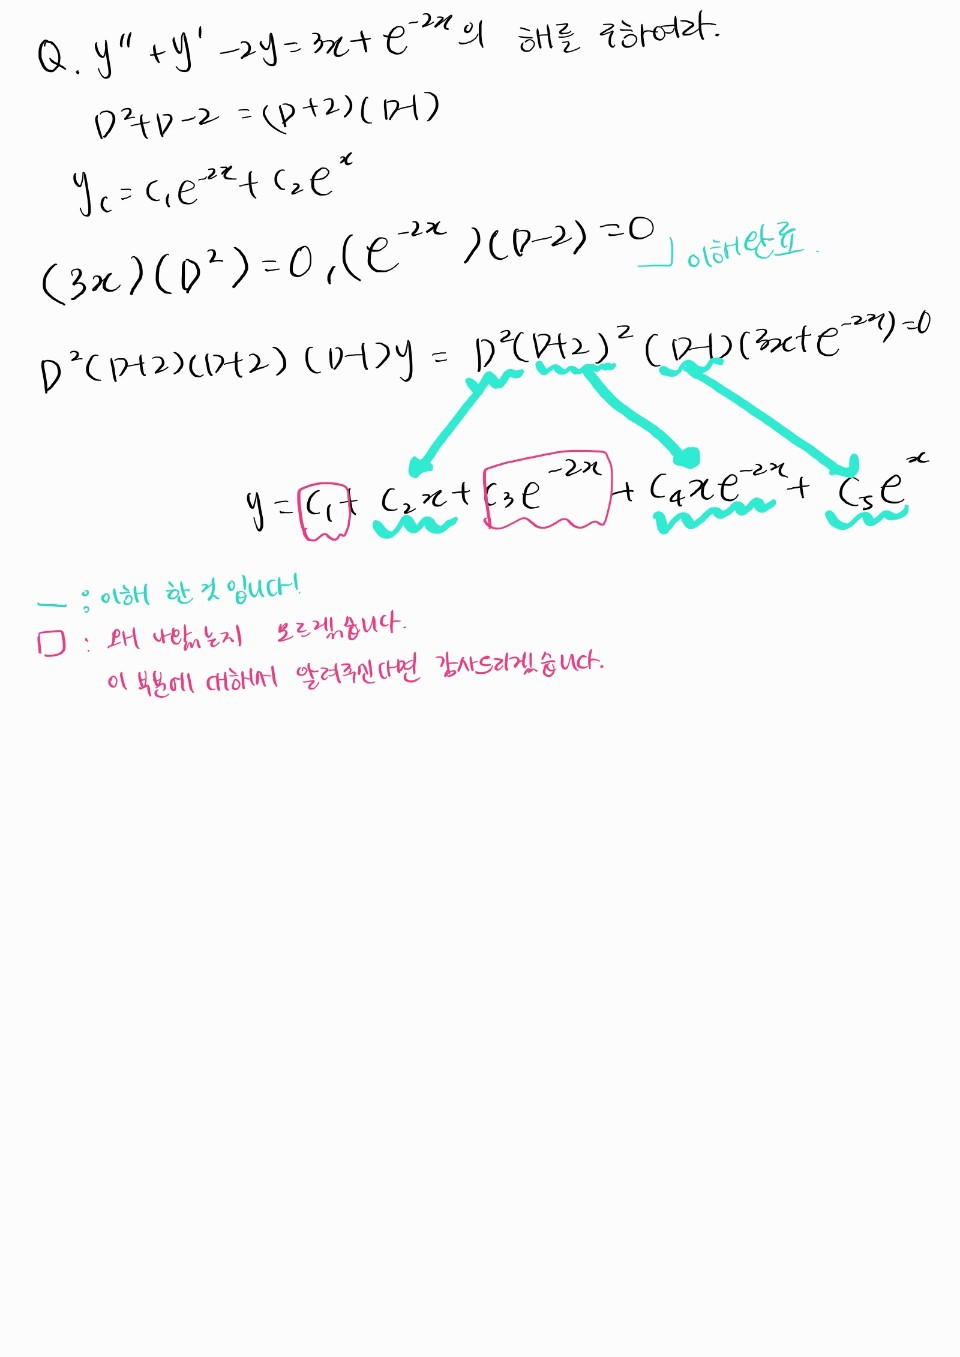 Q. y'' + y' - 2y = 3x + e^{-2x}의 해를 구하여라.
D²+D-2 = (D+2)(D-1)
y_c = c₁e^{-2x} + c₂e^x
(3x)(D²) = 0, (e^{-2x})(D-2) = 0 이해완료.
D²(D+2)(D+2)(D-1)y = D²(D+2)²(D-1)(3x+e^{-2x}) = 0
y = c₁ + c₂x + c₃e^{-2x} + c₄xe^{-2x} + c₅e^x
— : 이해 한 것 입니다!
□ : 왜 나왔는지 모르겠습니다.
이 부분에 대해서 알려주신다면 감사드리겠습니다.